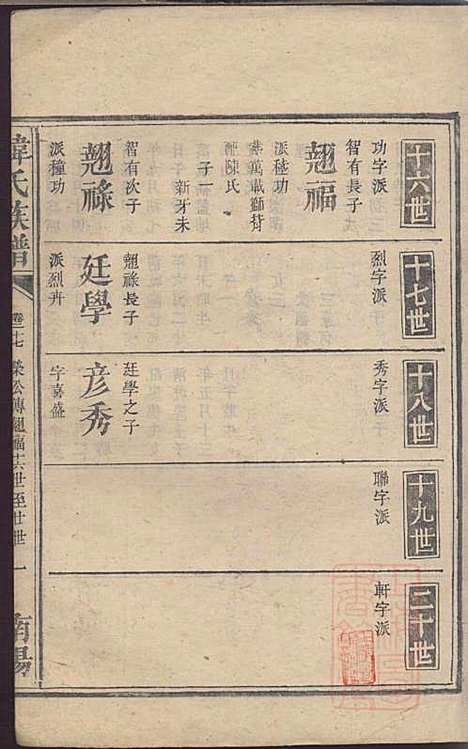 十六世
功字派
智有長子
翹福
派穜功
葬萬載獅背
配陳氏
子一
新牙未
智有次子
翹祿
派穜功
十七世
烈字派
翹祿長子
廷學
派烈卉
十八世
秀字派
廷學之子
彥秀
字嘉盛
十九世
聯字派
二十世
軒字派
韓氏族譜
卷十七
榮公傳翹福十六世至廿世
一
南陽